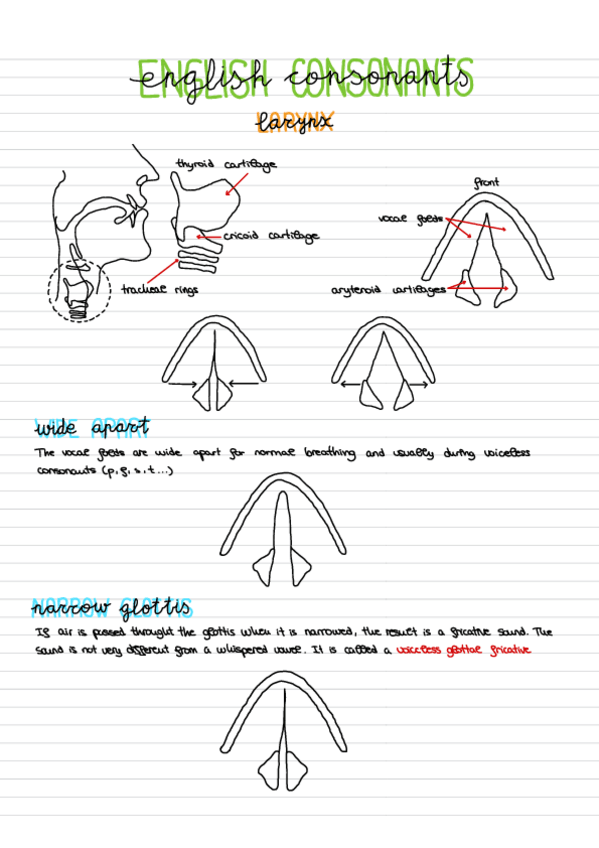 ENGLISH CONSONANTS
english consonants
LARYNX
larynx
thyroid cartilage
front
vocal folds
cricoid cartilage
tracheal rings
aryteroid cartilages
WIDE APART
wide apart
The vocal folds are wide apart for normal breathing and usually during voiceless
consonants (p, f, s, t...)
NARROW GLOTTIS
narrow glottis
If air is passed throught the glottis when it is narrowed, the result is a fricative sound. The
sound is not very different from a whispered vowel. It is called a voiceless glottal fricative